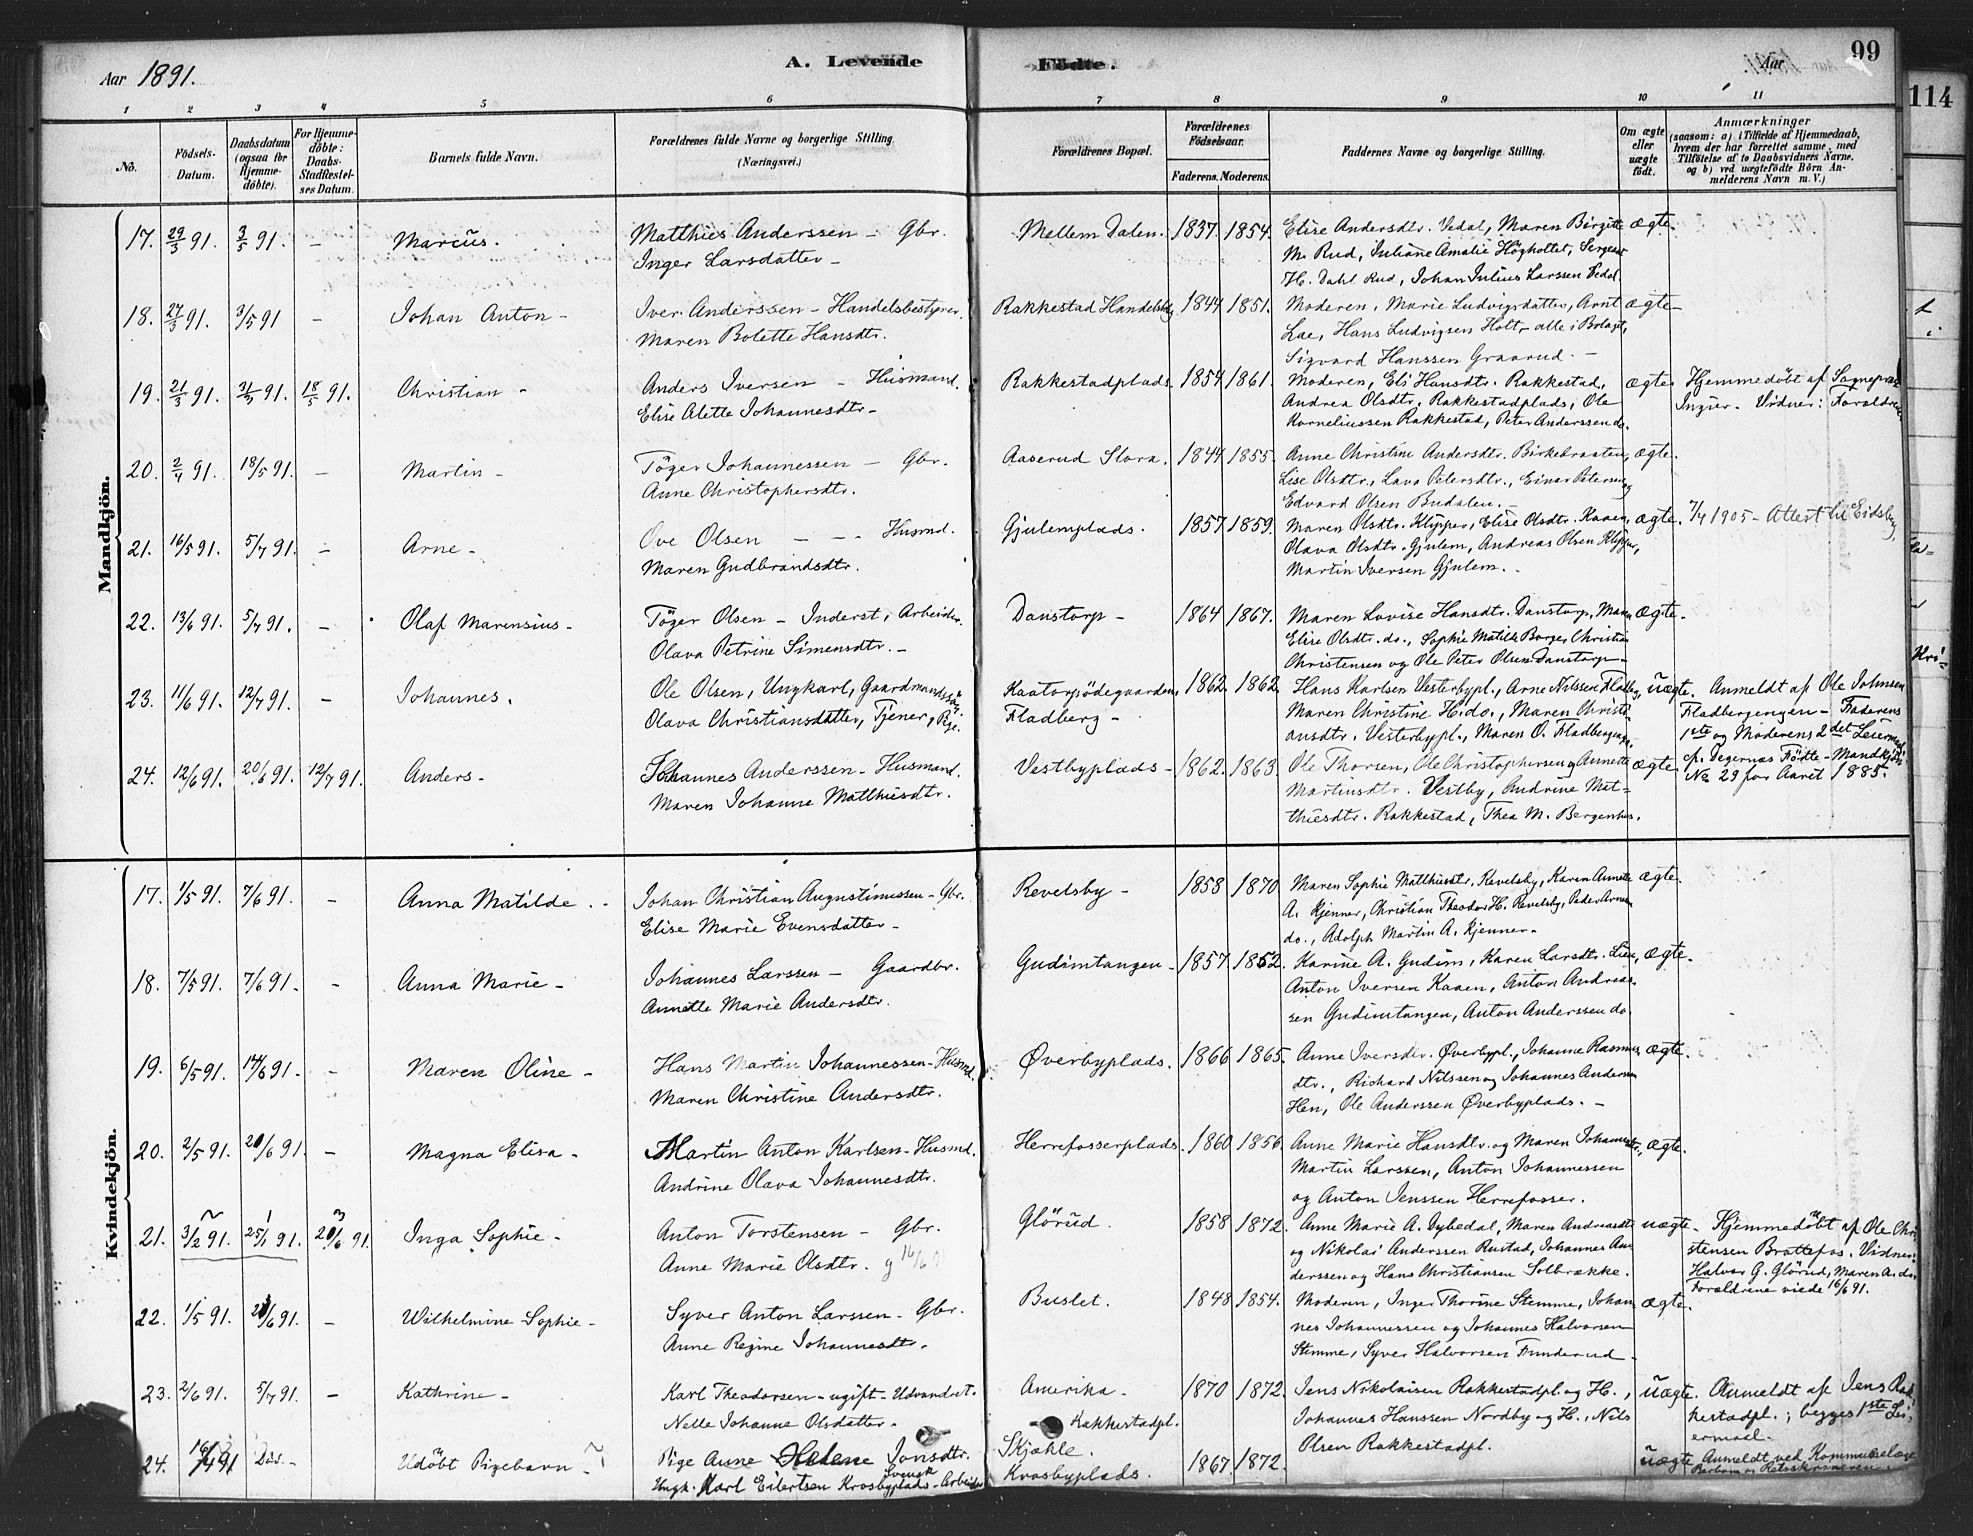 Aar 1891. A. Levende Fødte. Aar 99
114
1 2 3 4 5 6 7 8 9 10 11
No. Födsels-Datum. Daabsdatum (ogsaa for Hjemmedöbte). For Hjemmedöbte: Daabs-Stadfestelses Datum. Barnets fulde Navn. Forældrenes fulde Navne og borgerlige Stilling. (Næringsvei.) Forældrenes Bopæl. Forældrenes Födselsaar. Faderens. Moderens. Faddernes Navne og borgerlige Stilling. Om ægte eller uægte födt. Anmærkninger (saasom: a) i Tilfælde af Hjemmedaab, hvem der har forrettet samme, med Tilföielse af to Daabsvidners Navne, og b) ved uægtefödte Börn Anmelderens Navn m. V.)
Mandkjön.
17. 29/3 91. 3/5 91. - Marcus. Matthies Anderssen - Gbr. Mellem Dalen. 1837. 1854. Elise Andersdtr. Vedal, Maren Birgitte ægte.
Inger Larsdatter - M. Rud, Juliane Amalie Höghottet, Sergeant
H. Dahl Rud, Johan Julius Larssen Vedal.
18. 27/3 91. 3/5 91 - Johan Anton - Iver Anderssen - Handelsbestyrer. Rakkestad Handelsby 1844 1851. Moderen, Marie Ludvigsdatter, Arnt ægte -
Maren Bolette Hansdtr. Lae, Hans Ludvigsen Holt, alle i Bolaget,
Sigvard Hanssen Graarud. -
19. 21/3 91. 31/3 91. 18/5 91. Christian - Anders Iversen - Husmand. Rakkestadplads. 1854 1861. Moderen, Eli Hansdtr. Rakkestad, ægte. Hjemmedöbt af Sognepræst
Elise Alette Johannesdtr - Andrea Olsdtr. Rakkestadplads, Ole Ingier. Vidner: Forældrene
Korneliussen Rakkestad, Peter Anderssen do.
20. 2/4 91. 18/5 91. - Martin - Töger Johannessen - Gbr. Aaserud Store. 1844 1855. Anne Christine Andersdtr. Birkebraaten, ægte.
Anne Christophersdtr. Lise Olsdtr., Lava Petersdtr., Einar Petersen og
Edvard Olsen Budalen. -
21. 16/5 91. 5/7 91. - Arne - Ove Olsen - - - Husmd. Gjulemplads. 1857 1859. Maren Olsdtr. Klypper, Elise Olsdtr. Kaaen, ægte. 7/7 1905 - Attest til Eidsberg
Maren Gudbrandsdtr. Olava Olsdtr. Gjulem, Andreas Olsen Klypper,
Martin Iversen Gjulem.
22. 13/6 91. 5/7 91. - Olaf Marensius - Töger Olsen - Inderst, Arbeider. Danstorp - 1864 1867. Maren Lovise Hansdtr. Danstorp, Maren ægte.
Olava Petrine Simensdtr. - Elise Olsdtr. do., Sophie Matilde Borge, Christian
Christensen og Ole Peter Olsen Danstorp -
23. 11/6 91. 12/7 91. - Johannes. Ole Olsen, Ungkarl, Gaardmandssön. Kaatorpödegaarden, 1862. 1862. Hans Karlsen Vesterbypl., Arne Nilssen Fladberg, uægte. Anmeldt af Ole Johnsen
Olava Christiansdatter, Tjener, Pige. Fladberg - Maren Christine H. do., Maren Christi- Fladbergengen - Faderens
ansdtr. Vesterbypl., Maren O. Fladbergengen. 1ste og Moderens 2det Leiermaal
24. 12/6 91. 20/6 91. 12/7 91. Anders - Johannes Anderssen - Husmand. Vestbyplads - 1862. 1863. Ole Thorsen, Ole Christophersen og Annette ægte. cfr. Degernæs Födte - Mandkjön
Maren Johanne Matthiesdtr. Martinsdtr. Vestby, Andrine Mat- No 29 for Aaret 1885.
thiesdtr. Rakkestad, Thea M. Bergenhus.
Kvindekjön.
17. 1/5 91. 7/6 91. - Anna Matilde. Johan Christian Augustinussen - Gbr. Revelsby - 1858 1870 Maren Sophie Matthiesdtr. Revelsby, Karen Annette ægte.
Elise Marie Evensdatter - A. Kjenner, Christian Theodor H. Revelsby, Peder Arnesen
do., Adolph Martin A. Kjenner -
18. 7/5 91. 7/6 91. - Anna Marie - Johannes Larssen - Gaardbr. Gudimtangen - 1857. 1852. Karine A. Gudim, Karen Larsdtr. Lien, ægte.
Annette Marie Andersdtr. Anton Iversen Kaaen, Anton Andreas-
sen Gudimtangen, Anton Anderssen do
19. 6/5 91. 14/6 91. - Maren Oline - Hans Martin Johannessen - Husmd. Øverbyplads. 1866 1865. Anne Iversdtr. Øverbypl., Johanne Rasmus ægte.
Maren Christine Andersdtr. dtr., Richard Nilssen og Johannes Andersen
Hen, Ole Anderssen Øverbyplads. -
20. 2/5 91. 21/6 91. - Magna Elisa - Martin Anton Karlsen - Husmd. Herrefosserplads. 1860 1856. Anne Marie Hansdtr. og Maren Johannesdtr., ægte.
Andrine Olava Johannesdtr. Martin Larssen, Anton Johannessen
og Anton Jenssen Herrefosser.
21. 3/2 91. 25/1 91. 21/6 91. Inga Sophie - Anton Torstensen - Gbr. Glörud. 1858 1872. Anne Marie A. Dybedal, Maren Andreasdtr uægte - Hjemmedöbt af Ole Chri
Anne Marie Olsdtr. g 16/6 91 og Nikolai Anderssen Rustad, Johannes An- stensen Brattefos. Vidner:
derssen og Hans Christiansen Solbrække. Halvor G. Glörud, Maren A. do
Forældrene viede 16/6 91.
22. 1/5 91. 21/6 91. - Wilhelmine Sophie - Syver Anton Larssen - Gbr. Buslet. 1848 1854. Moderen, Inger Thorine Stemme, Johan ægte.
Anne Regine Johannesdtr. nes Johannessen og Johannes Halvorsen
Stemme, Syver Halvorsen Funderud -
23. 2/6 91. 5/7 91. - Kathrine - Karl Theodorsen - ugift - Udvandret. Amerika - 1870 1872. Jens Nikolaisen Rakkestadpl og H., uægte. Anmeldt af Jens Rak
Nelle Johanne Olsdatter - Rakkestadpl. Johannes Hanssen Nordby og H., Nils kestadpl.; begges 1ste Lei-
Olsen Rakkestadpl. ermaal -
24. 16/7 91 Död - Udöbt Pigebarn - Pige Anne Helene Jonsdtr. Skjækle. 1867 1872. uægte Anmeldt ved Kommunelæge
Ungk. Karl Eilertsen Krosbyplads - Svensk Arbeider Krosbyplads.